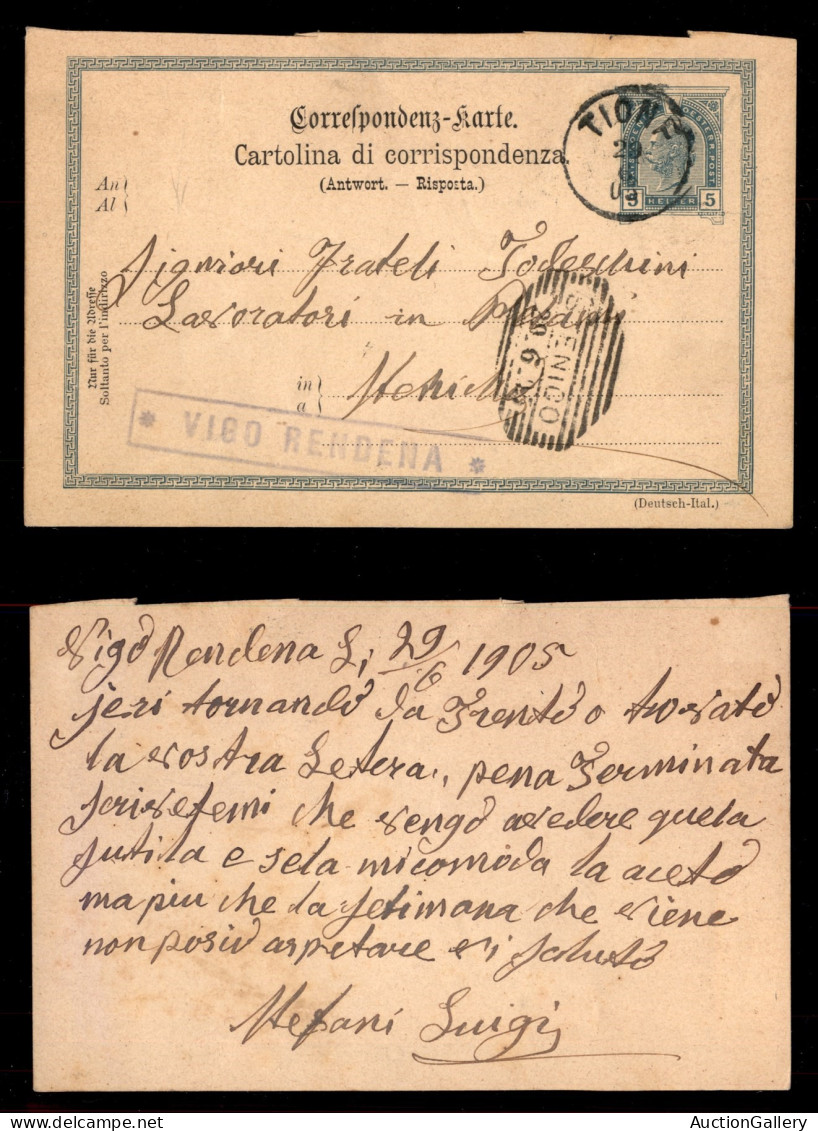 Correspondenz-Karte.
Cartolina di corrispondenza.
(Antwort. — Risposta.)
TIONE
29
6
5 HELLER 5
An
Al
Signiori Frateli Todeschini
Lavoratori in
in
a
Nur für die Adresse
Soltanto per l'indirizzo
* VIGO RENDENA *
(Deutsch-Ital.)
Vigo Rendena Li 29/6 1905
jeri tornando da Trento o trovato
la vostra Letera, pena Terminata
scrivetemi che vengo avedere quela
sutila e sela micomoda la aceto
ma piu che la setimana che viene
non posio aspetare vi saluto
Stefani Luigi
AuctionGallery
www.AuctionGallery.com